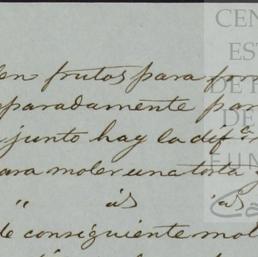 en frutos para for
paradamente par
junto hay la dif.ª
ara moler una torta
" id id
de consiguiente mol
CEN
ES
DE
DE
FUN
Ca